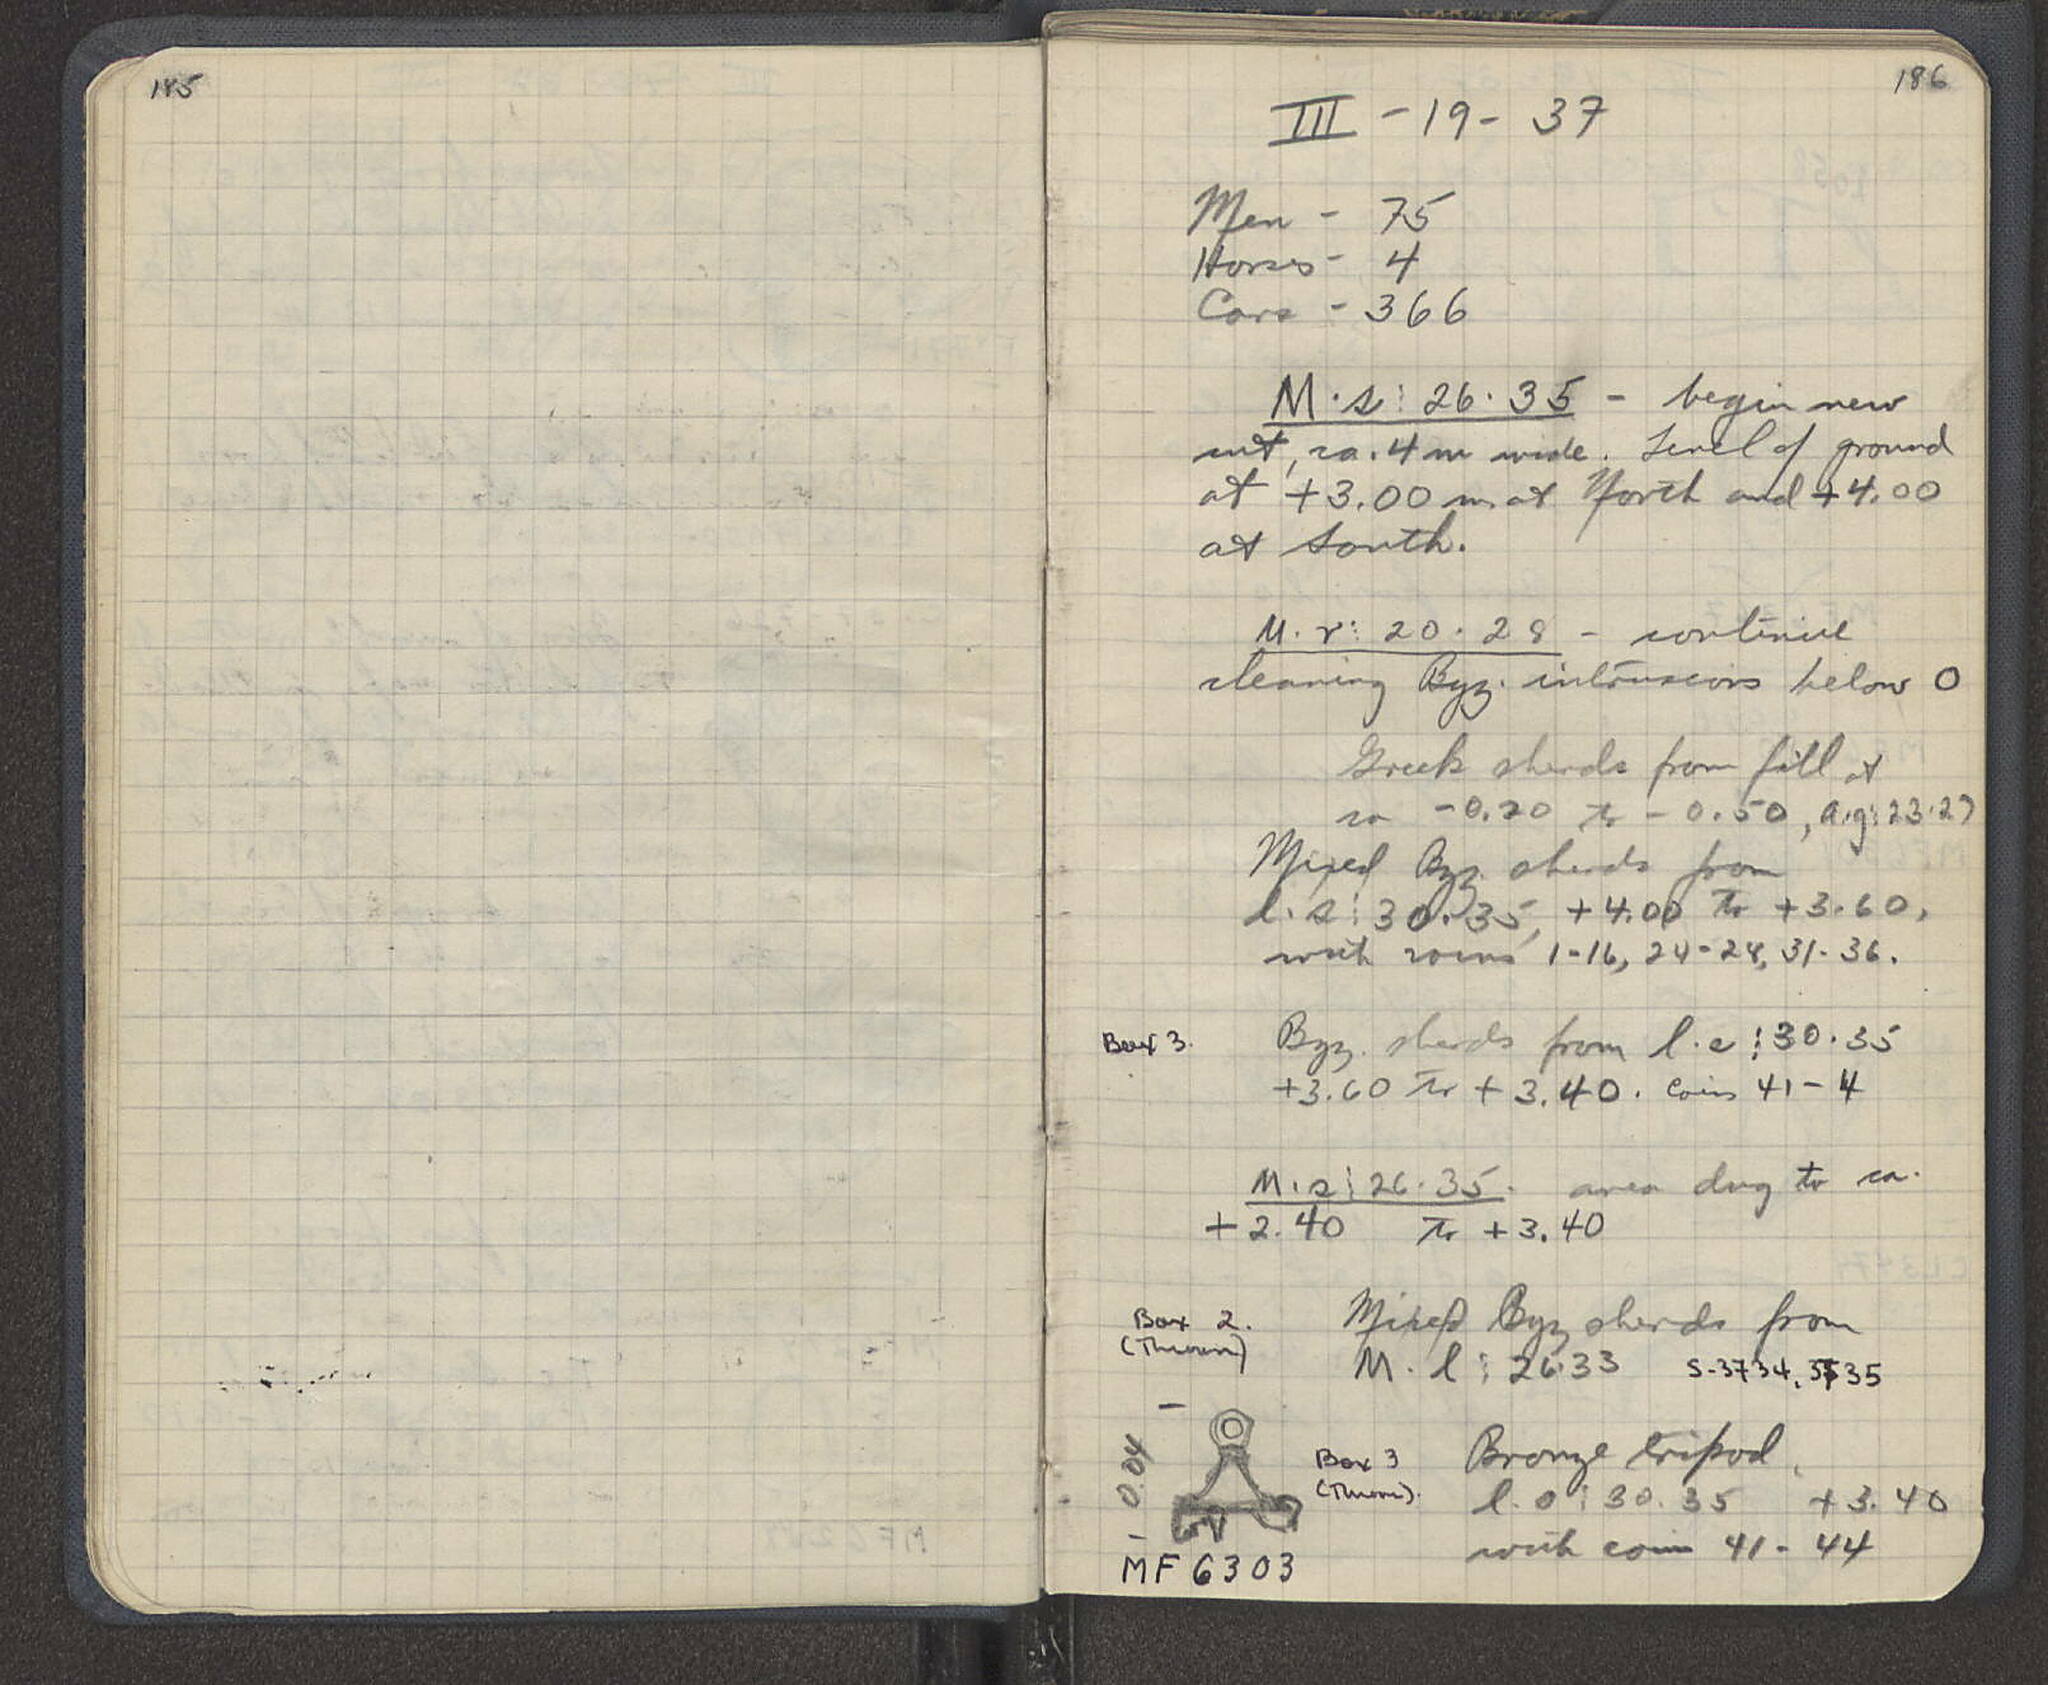 185
186
III - 19 - 37
Men - 75
Horses - 4
Cars - 366
M·s⁝26·35 - begin new
cut, ca. 4 m wide. Level of ground
at +3.00 m at North and +4.00
at South.
M·r⁝20·28 - continue
cleaning Byz. intrusions below 0
Greek sherds from fill at
ca -0.20 to -0.50, a.g⁝23·27
Mixed Byz. sherds from
l·s⁝30·35, +4.00 to +3.60,
with coins 1-16, 24-28, 31-36.
Box 3.
Byz. sherds from l·s⁝30·35
+3.60 to +3.40. Coins 41-4
M·s⁝26·35. area dug to ca.
+2.40 to +3.40
Box 2.
(Thrown)
Mixed Byz sherds from
M·l⁝26·33 S-3734, 3735
0.04
Box 3
(Thrown).
Bronze tripod,
l·o⁝30·35 +3.40
with coins 41-44
MF 6303